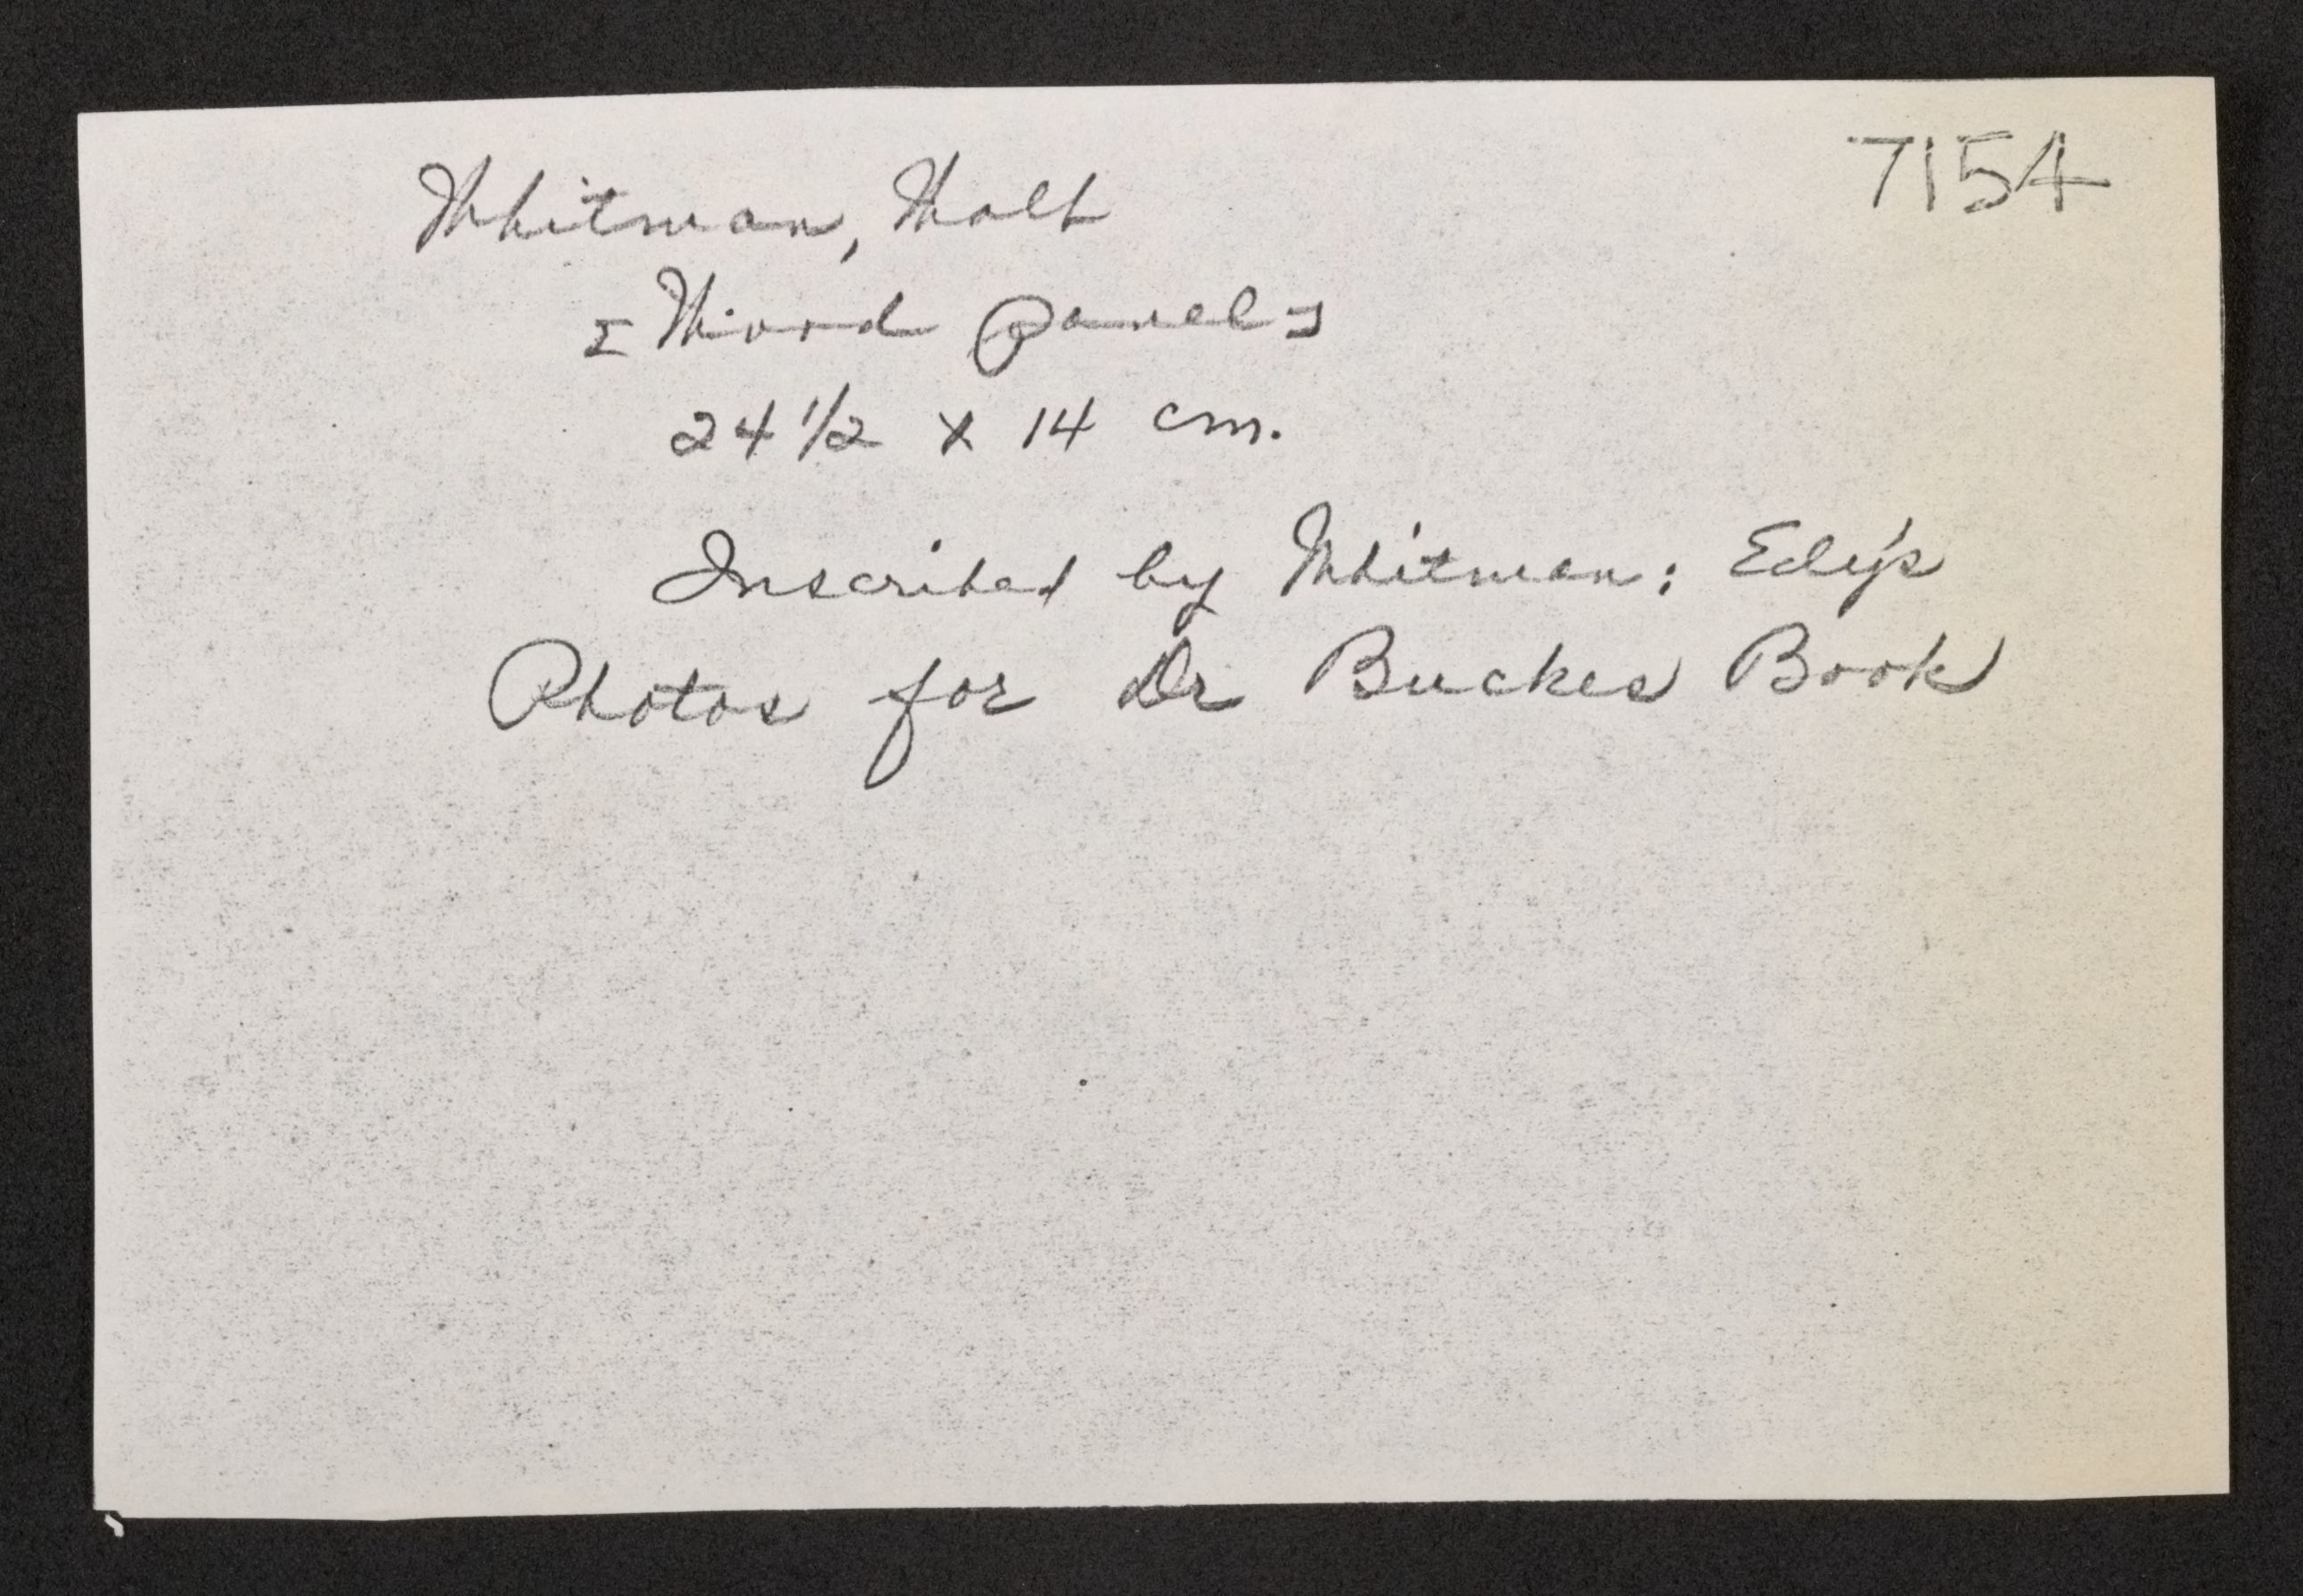 7154
Whitman, Walt
[Wood panel]
24 1/2 x 14 cm.
Inscribed by Whitman: Edy's
Photos for Dr Buckes Book